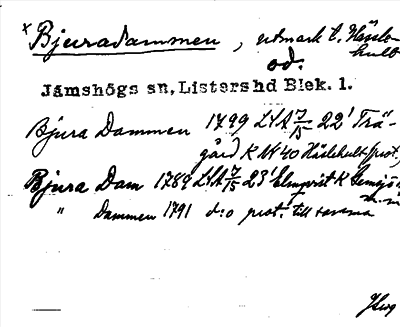 x Bjuradammen, utmark t. Hässle-
hult
od.
Jämshögs sn, Listers hd Blek. l.
Bjura Dammen 1799 LSA 7/15 22' Trä-
gård K № 40 Hässlehult (prot.)
Bjura Dam 1789 LSA 7/15 23' Elmqvist K
" Dammen 1791 d:o prot. till samma